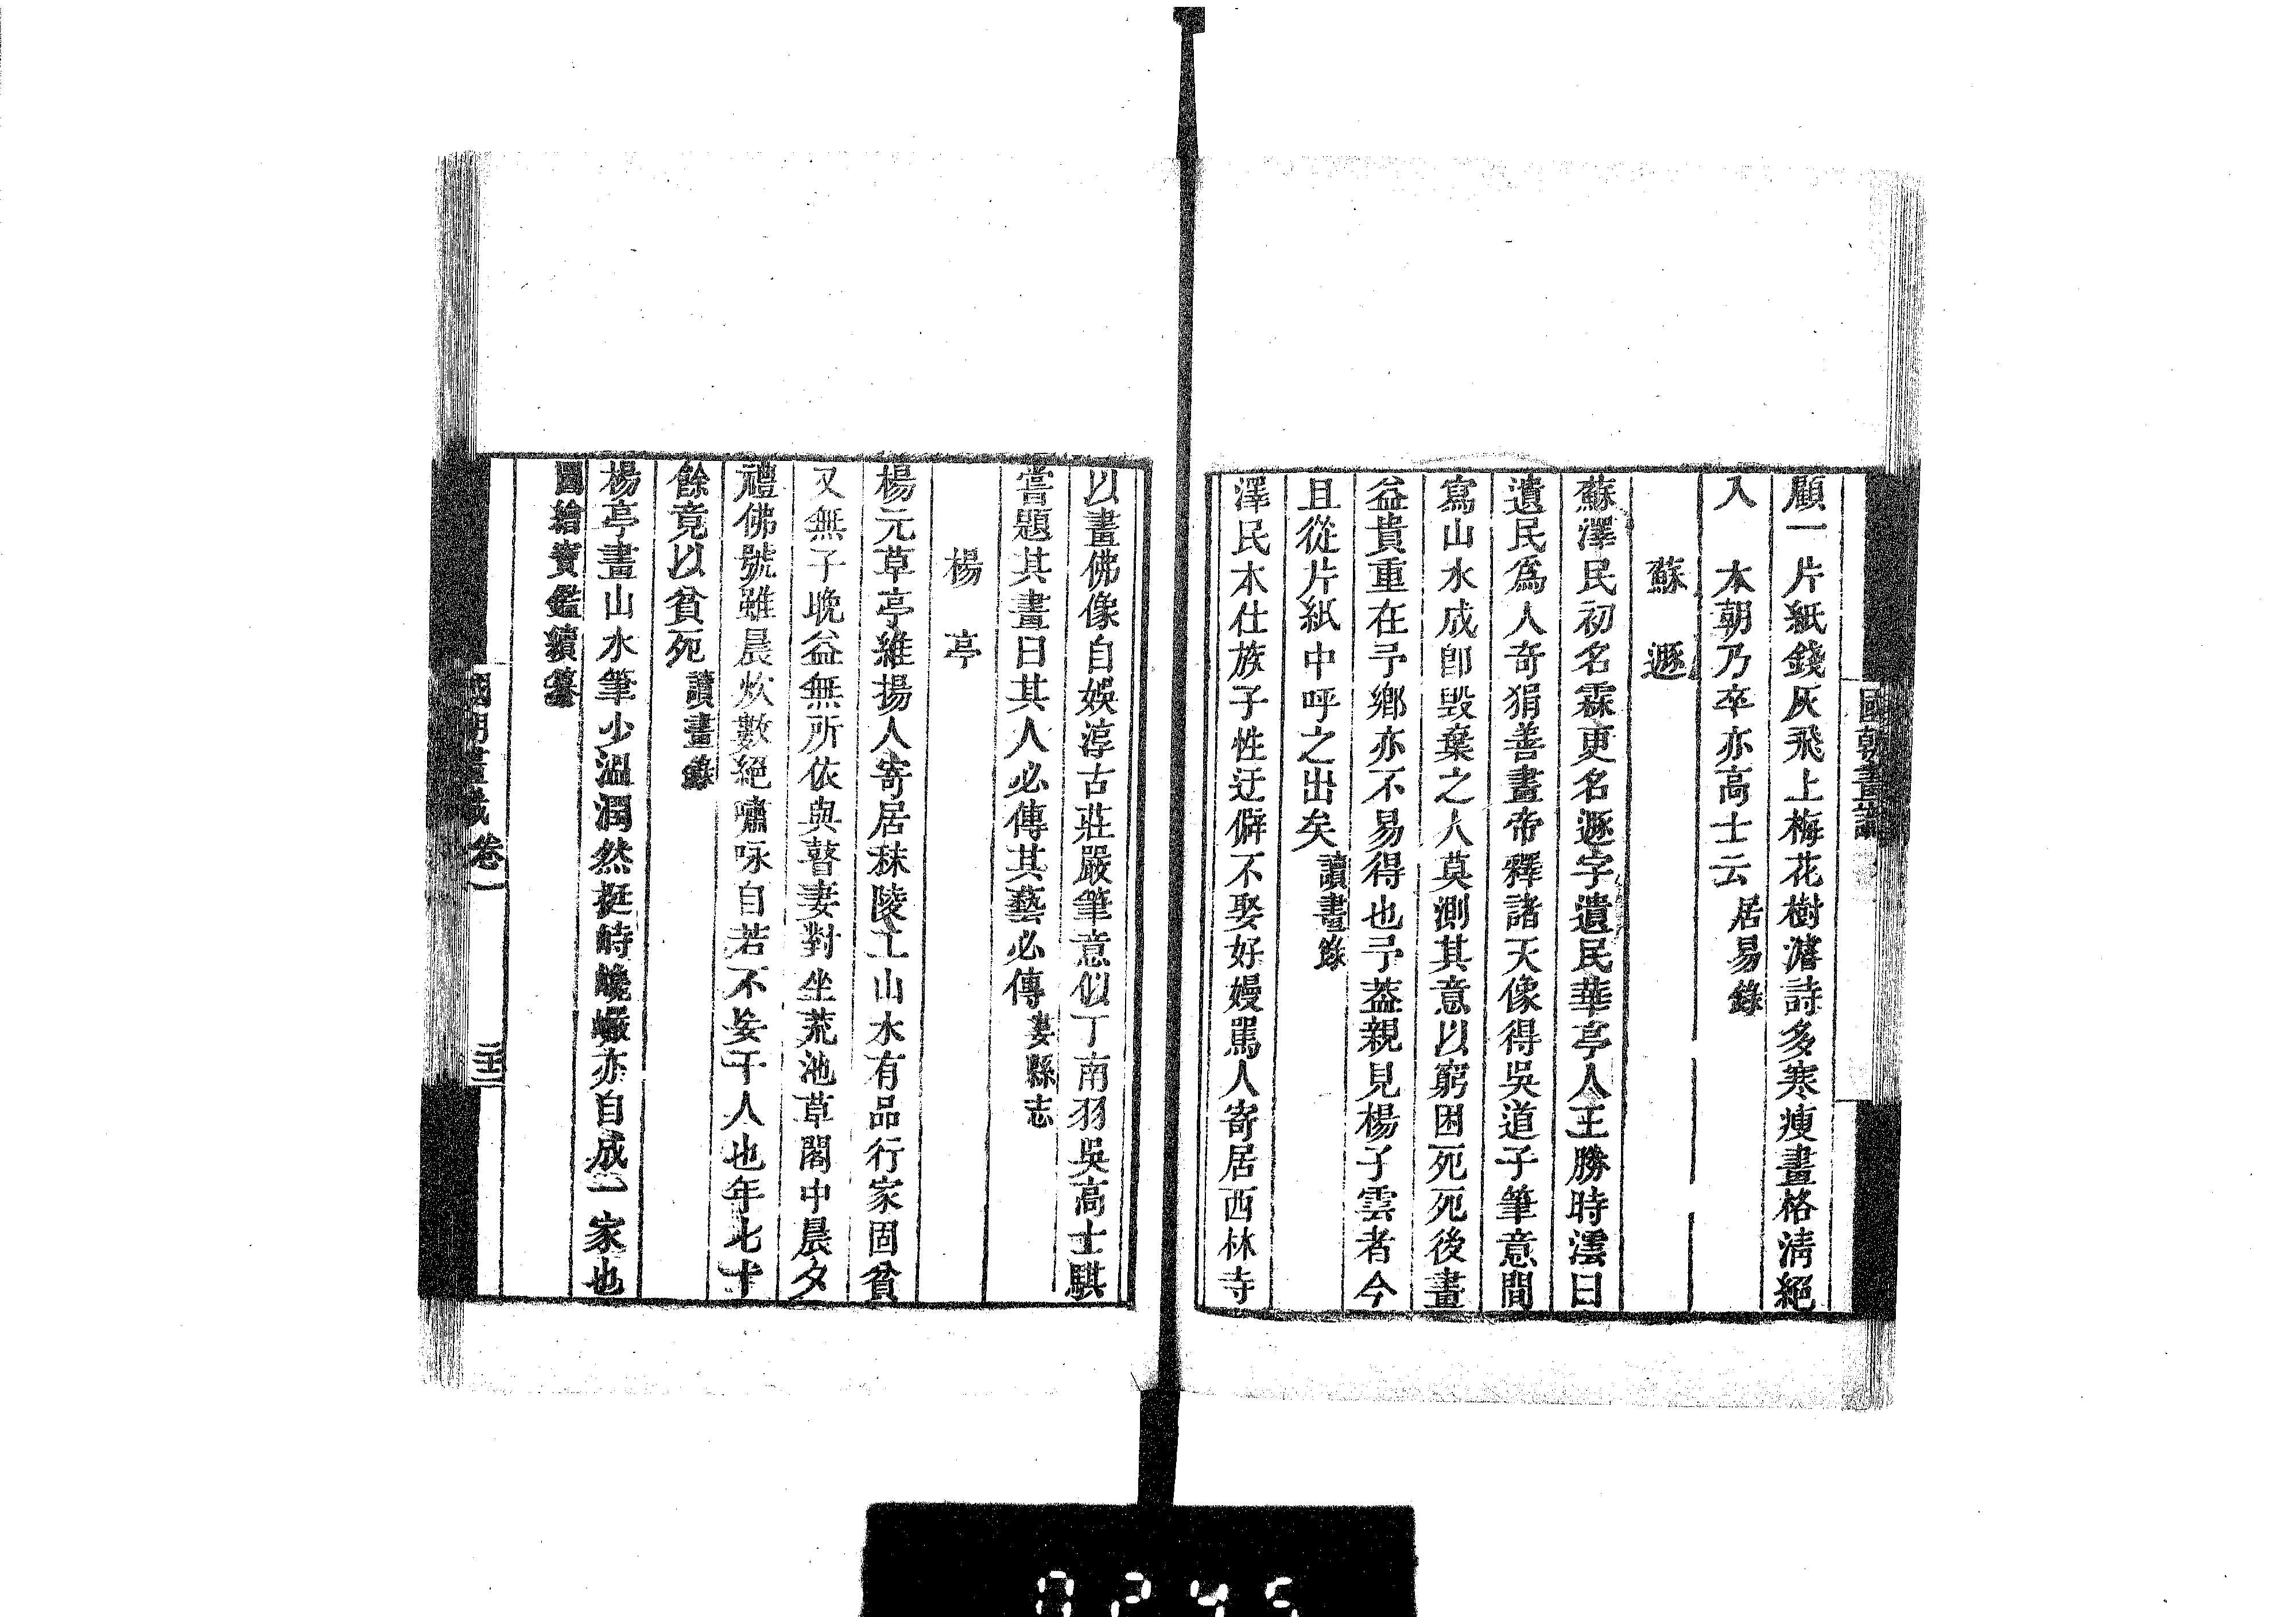 國朝畫識
顧一片紙錢灰飛上梅花樹濬詩多寒瘦畫格淸絕
入　本朝乃卒亦高士云居易錄
蘇　遯
蘇澤民初名霖更名遯字遺民華亭人王勝時澐曰
遺民爲人奇狷善畫帝釋諸天像得吳道子筆意間
寫山水成卽毀棄之人莫測其意以窮困死死後畫
益貴重在予鄉亦不易得也予葢親見楊子雲者今
且從片紙中呼之出矣讀畫錄
澤民本仕族子性迂僻不娶好嫚罵人寄居西林寺
以畫佛像自娛淳古莊嚴筆意似丁南羽吳高士騏
嘗題其畫曰其人必傳其藝必傳婁縣志
楊　亭
楊元草亭維揚人寄居秣陵工山水有品行家固貧
又無子晚益無所依與瞽妻對坐荒池草閣中晨夕
禮佛號雖晨炊數絕嘯咏自若不妄干人也年七十
餘竟以貧死讀畫錄
楊亭畫山水筆少溫潤然挺峙巉巖亦自成一家也
圖繪寶鑑續纂
國朝畫識　卷一
0245